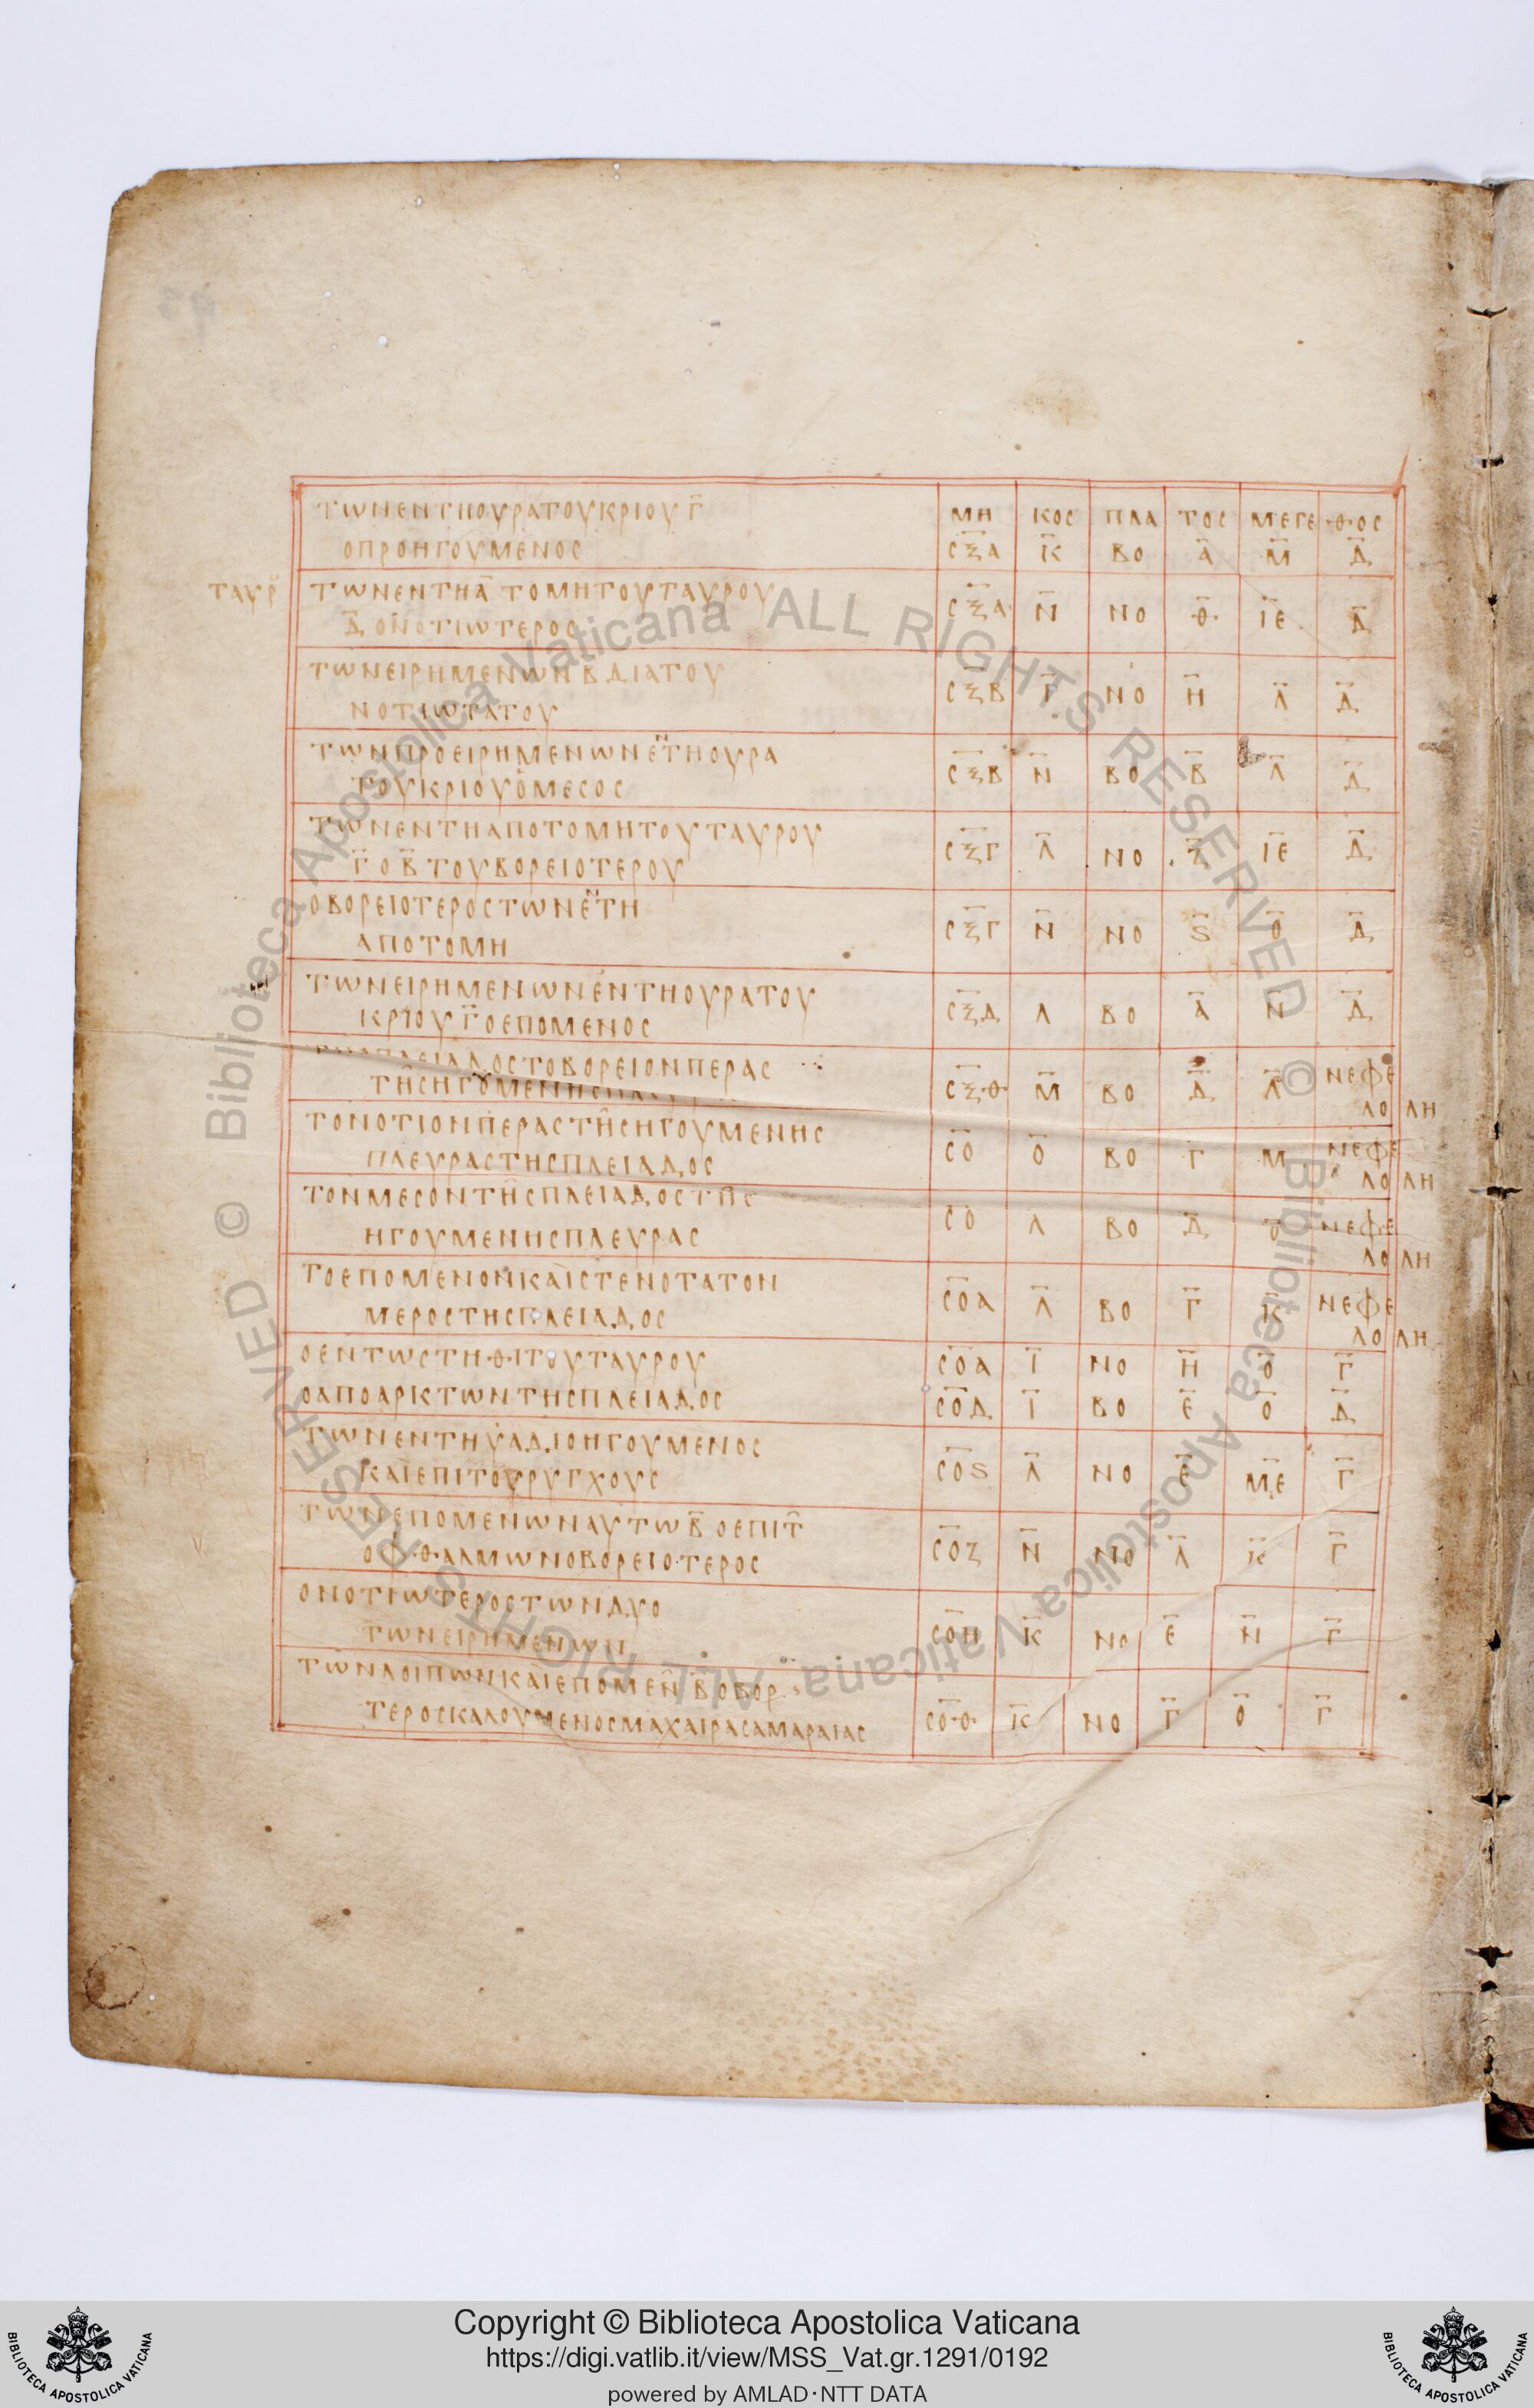 ΤΩΝΕΝΤΗΟΥΡΑΤΟΥΚΡΙΟΥ Γ̅ ΜΗ ΚΟϹ ΠΛΑ ΤΟϹ ΜΕΓΕ ΘΟϹ
ΟΠΡΟΗΓΟΥΜΕΝΟϹ ϹΞΑ Κ ΒΟ Α Μ Δ
ΤΑΥΡ ΤΩΝΕΝΤΗΑ ΤΟΜΗΤΟΥΤΑΥΡΟΥ
Δ ΟΝΟΤΙΩΤΕΡΟϹ ϹΞΑ Ν ΝΟ Θ ΙΕ Δ
ΤΩΝΕΙΡΗΜΕΝΩΝ Β ΔΙΑΤΟΥ
ΝΟΤΙΩΤΑΤΟΥ ϹΞΒ Γ ΝΟ Η Λ Δ
ΤΩΝΠΡΟΕΙΡΗΜΕΝΩΝΕΤΗΟΥΡΑ
ΤΟΥΚΡΙΟΥΟΜΕϹΟϹ ϹΞΒ Ν ΒΟ Β Λ Δ
ΤΩΝΕΝΤΗΑΠΟΤΟΜΗΤΟΥΤΑΥΡΟΥ
Γ Ο Β ΤΟΥΒΟΡΕΙΟΤΕΡΟΥ ϹΞΓ Λ ΝΟ Ζ ΙΕ Δ
ΟΒΟΡΕΙΟΤΕΡΟϹΤΩΝΕΤΗ
ΑΠΟΤΟΜΗ ϹΞΓ Ν ΝΟ Ϛ Ο Δ
ΤΩΝΕΙΡΗΜΕΝΩΝΕΝΤΗΟΥΡΑΤΟΥ
ΚΡΙΟΥ Γ ΟΕΠΟΜΕΝΟϹ ϹΞΔ Λ ΒΟ Α Ν Δ
ΠΛΕΙΑΔΟϹΤΟΒΟΡΕΙΟΝΠΕΡΑϹ
ΤΗϹΗΓΟΥΜΕΝΗϹ ϹΞΘ Μ ΒΟ Δ Λ ΝΕΦΕ
ΛΟ ΛΗ
ΤΟΝΟΤΙΟΝΠΕΡΑϹΤΗϹΗΓΟΥΜΕΝΗϹ
ΠΛΕΥΡΑϹΤΗϹΠΛΕΙΑΔΟϹ ϹΟ Ο ΒΟ Γ Μ ΝΕΦΕ
ΛΟ ΛΗ
ΤΟΝΜΕϹΟΝΤΗϹΠΛΕΙΑΔΟϹΤΗϹ
ΗΓΟΥΜΕΝΗϹΠΛΕΥΡΑϹ ϹΟ Λ ΒΟ Δ Ο ΝΕΦΕ
ΛΟ ΛΗ
ΤΟΕΠΟΜΕΝΟΝΚΑΙϹΤΕΝΟΤΑΤΟΝ
ΜΕΡΟϹΤΗϹΠΛΕΙΑΔΟϹ ϹΟΑ Λ ΒΟ Γ Κ ΝΕΦΕ
ΛΟ ΛΗ
ΟΕΝΤΩϹΤΗΘΙΤΟΥΤΑΥΡΟΥ ϹΟΑ Ι ΝΟ Η Ο Γ
ΟΑΠΟΑΡΚΤΩΝΤΗϹΠΛΕΙΑΔΟϹ ϹΟΔ Ι ΒΟ Ε Ο Δ
ΤΩΝΕΝΤΗΥΑΔΙΟΗΓΟΥΜΕΝΟϹ
ΚΑΙΕΠΙΤΟΥΡΥΓΧΟΥϹ ϹΟϚ Λ ΝΟ Ε ΜΕ Γ
ΤΩΝΕΠΟΜΕΝΩΝΑΥΤΩ Β ΟΕΠΙΤ
ΟΦΘΑΛΜΩΝΟΒΟΡΕΙΟΤΕΡΟϹ ϹΟΖ Ν ΝΟ Λ Κ Γ
ΟΝΟΤΙΩΤΕΡΟϹΤΩΝΔΥΟ
ΤΩΝΕΙΡΗΜΕΝΩΝ ϹΟΗ Κ ΝΟ Ε Ν Γ
ΤΩΝΛΟΙΠΩΝΚΑΙΕΠΟΜΕΝ Β ΟΒΟΡ
ΤΕΡΟϹΚΑΛΟΥΜΕΝΟϹΜΑΧΑΙΡΑϹΑΜΑΡΑΙΑϹ ϹΟΘ Κ ΝΟ Γ Ο Γ
© Biblioteca Apostolica Vaticana ALL RIGHTS RESERVED © Biblioteca Apostolica Vaticana ALL RIGHTS RESERVED
Copyright © Biblioteca Apostolica Vaticana
https://digi.vatlib.it/view/MSS_Vat.gr.1291/0192
powered by AMLAD·NTT DATA
BIBLIOTECA APOSTOLICA VATICANA
BIBLIOTECA APOSTOLICA VATICANA